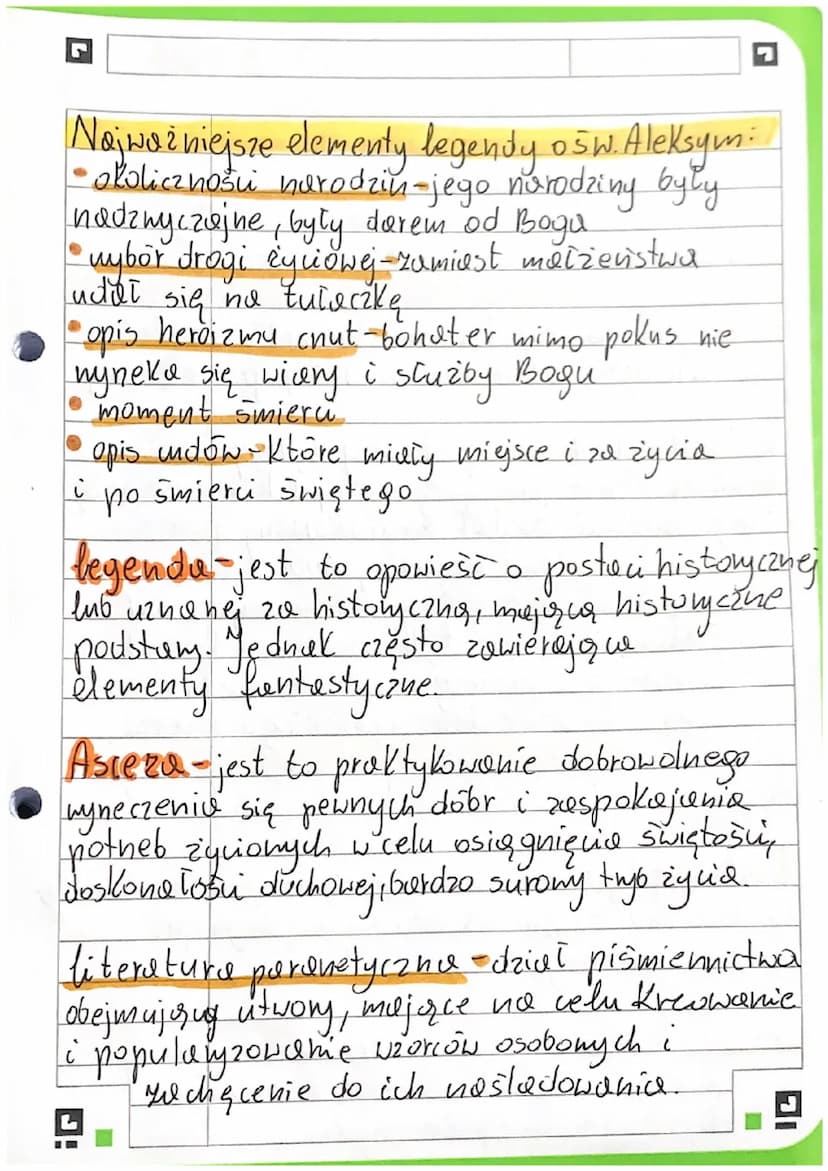 Najważniejsze elementy legendy o św. Aleksym:
• okoliczności narodzin - jego narodziny były
nadzwyczajne, były darem od Boga
• wybór drogi życiowej - zamiast małżeństwa
udał się na tułaczkę
• opis heroizmu cnut - bohater mimo pokus nie
wyrzeka się wiary i służby Bogu
• moment śmierci
• opis cudów - które miały miejsce i za życia
i po śmierci świętego
legenda - jest to opowieść o postaci historycznej
lub uznanej za historyczną, mającą historyczne
podstawy. Jednak często zawierająca
elementy fantastyczne.
Asceza - jest to praktykowanie dobrowolnego
wyrzeczenia się pewnych dóbr i zaspokajania
potrzeb życiowych w celu osiągnięcia świętości,
doskonałości duchowej, bardzo surowy tryb życia.
literatura parenetyczna - dział piśmiennictwa
obejmujący utwory, mające na celu kreowanie
i popularyzowanie wzorców osobowych i
zachęcenie do ich naśladowania.